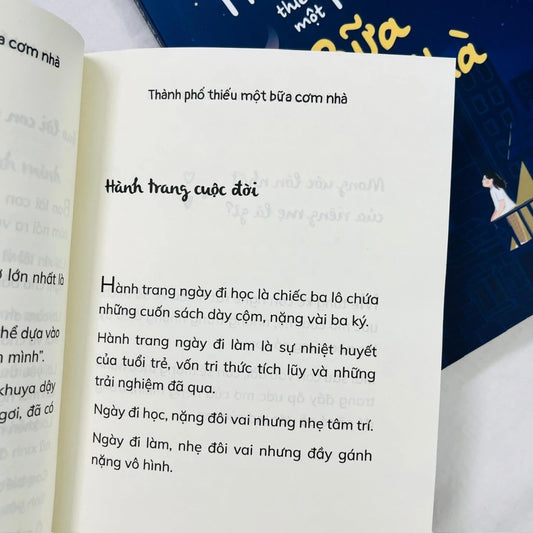 cơm nhà
lớn nhất là
dựa vào
mình”.
khuya dậy
đã có
Thành phố thiếu một bữa cơm nhà
Hành trang cuộc đời
Hành trang ngày đi học là chiếc ba lô chứa
những cuốn sách dày cộm, nặng vài ba ký.
Hành trang ngày đi làm là sự nhiệt huyết
của tuổi trẻ, vốn tri thức tích lũy và những
trải nghiệm đã qua.
Ngày đi học, nặng đôi vai nhưng nhẹ tâm trí.
Ngày đi làm, nhẹ đôi vai nhưng đầy gánh
nặng vô hình.
một
Bữa